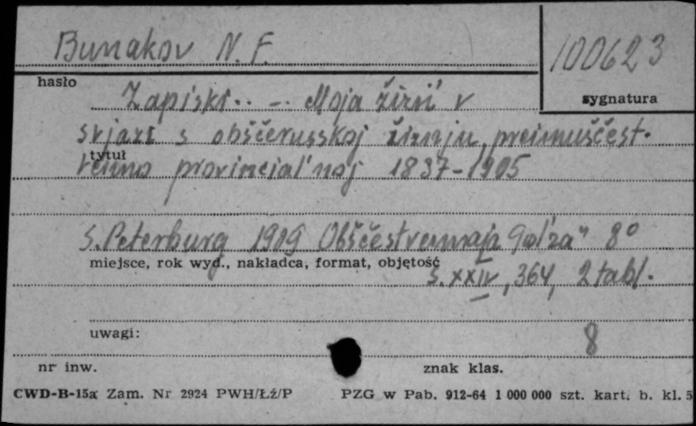 Bunakov N. F.
100623
hasło
sygnatura
Zapiski.. -. Moja žizń v
svjazi s obščerusskoj žiznju, preimuščest-
tytuł
venno provincial'noj 1837-1905
S. Peterburg 1909 Obščestvennaja Pol'za" 8°
miejsce, rok wyd., nakładca, format, objętość
s. XXIV, 364, 2 tabl.
uwagi:
8
nr inw.
znak klas.
CWD-B-15a Zam. Nr 2924 PWH/Łź/P
PZG w Pab. 912-64 1 000 000 szt. kart. b. kl. 5